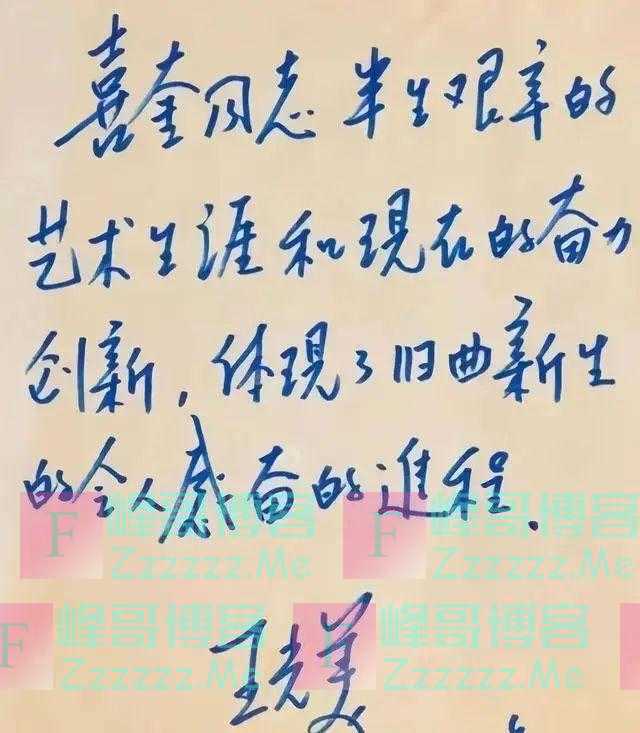 喜奎同志半生艰辛的
艺术生涯和現在的奋力
创新，体現了旧曲新生
的令人感奋的進程.
F 峰哥博客 F 峰哥博客
Zzzzzz.Me Zzzzzz.Me
F 峰哥博客 F 峰哥博客
Zzzzzz.Me Zzzzzz.Me
王光美